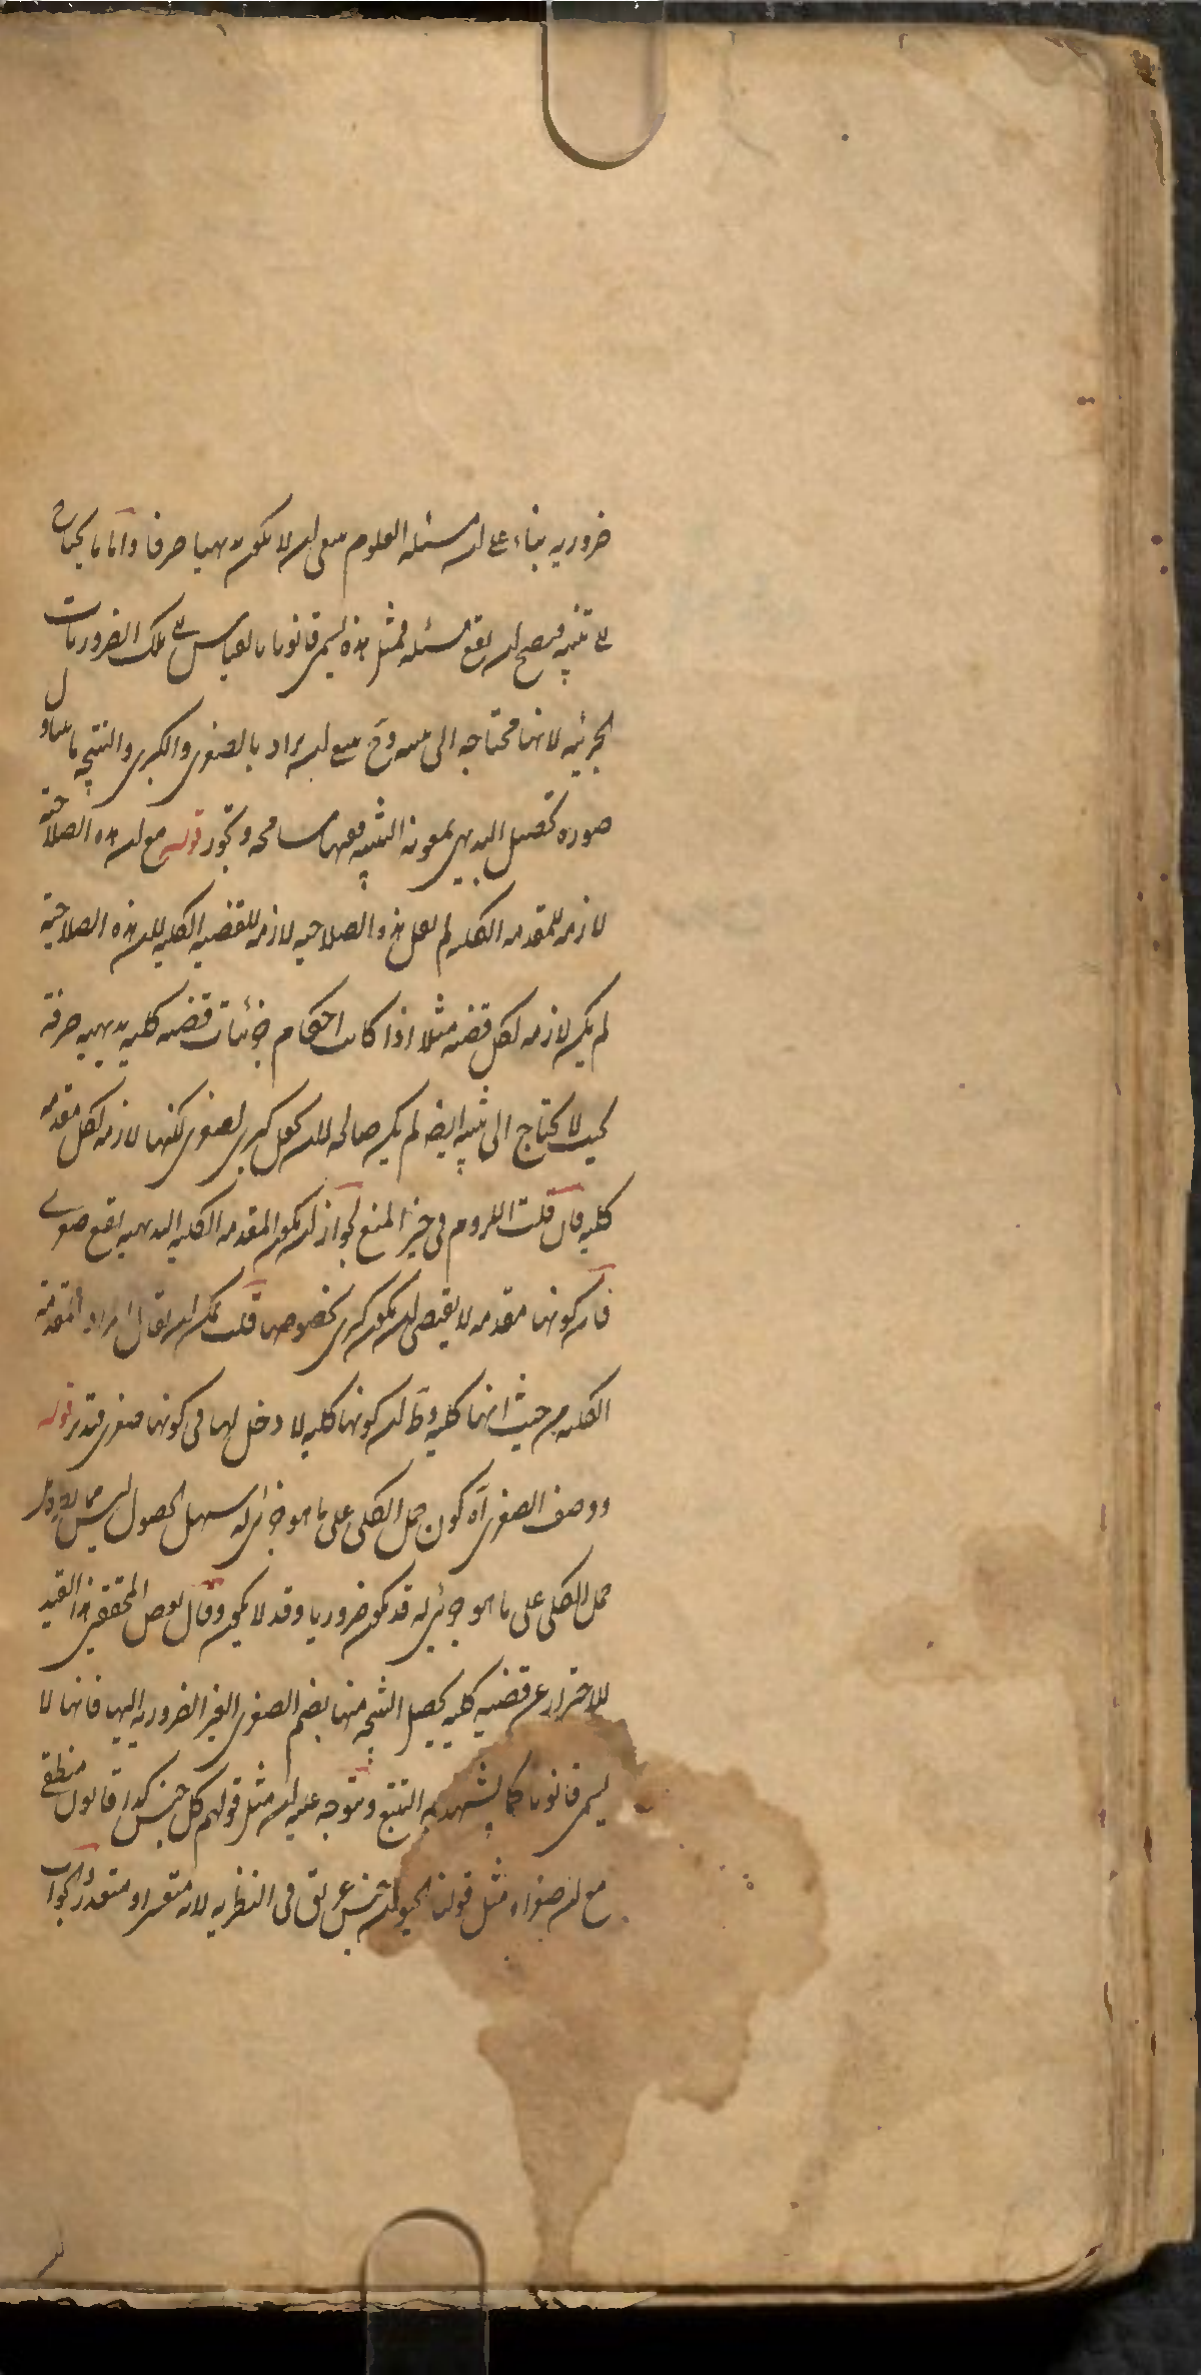 ضروريه بناء على ان مسئله العلوم ينبغى ان لا يكون بديهيا صرفا واما ما يحتاج
الى تنبيه فيصح ان يقع مسئله فمثل هذه ليسمى قانونا بالقياس الى تلك الضروريات
الجزئيه لانها محتاجه الى تنبيه وح ينبغى ان يراد بالصغرى والكبرى والنتيجه ما يتناول
صوره تحصيل البديهى بمعونه التنبيه ففيها مسامحه وتجوز قوله مع ان هذه الصلاحيه
لازمه للمقدمه الكليه لم لعل هذه الصلاحيه لازمه للقضيه الكليه لان هذه الصلاحيه
لم يكن لازمه لكل قضيه مثلا اذا كانت احكام جزئيات قضيه كليه بديهيه صرفه
بحيث لا يحتاج الى تنبيه ايضا لم يكن صالحه لان يجعل كبرى لصغرى لكنها لازمه لكل مقدمه
كليه فان قلت اللزوم فى حيز المنع لجواز ان يكون المقدمه الكليه البديهيه يقع صغرى
فان كونها مقدمه لا يقتضى ان يكون كبرى بخصوصها قلت يمكن ان يقال المراد المقدمه
الكليه من حيث انها كليه وظ ان كونها كليه لا دخل لها فى كونها صغرى فتدبر قوله
ووصف الصغرى آه كون حمل الكلى على ما هو جزئى له سهل الحصول ليس مما
حمل الكلى على ما هو جزئى له قد يكون ضروريا وقد لا يكون وقال بعض المحققين هذا القيد
للاحتراز عن قضيه كليه يحصل النتيجه منها بضم الصغرى الغير الضروريه اليها فانها لا
ليسمى قانونا كما يشهد به التتبع ويتوجه عليه ان مثل قولهم كل جنس كذا قانون منطقى
مع ان صغراه مثل قولنا الحيوان جنس عريق فى النظريه لانه متعسر او متعذر والجواب